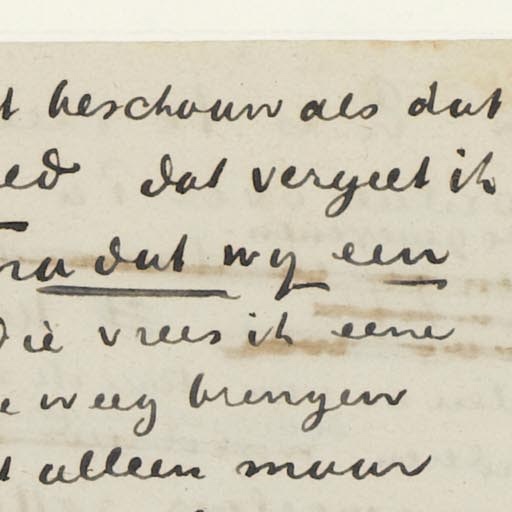 t beschouw als dat
ed dat vergeet ik
na dat wy een
die vrees ik eene
e weeg brengen
t alleen maar